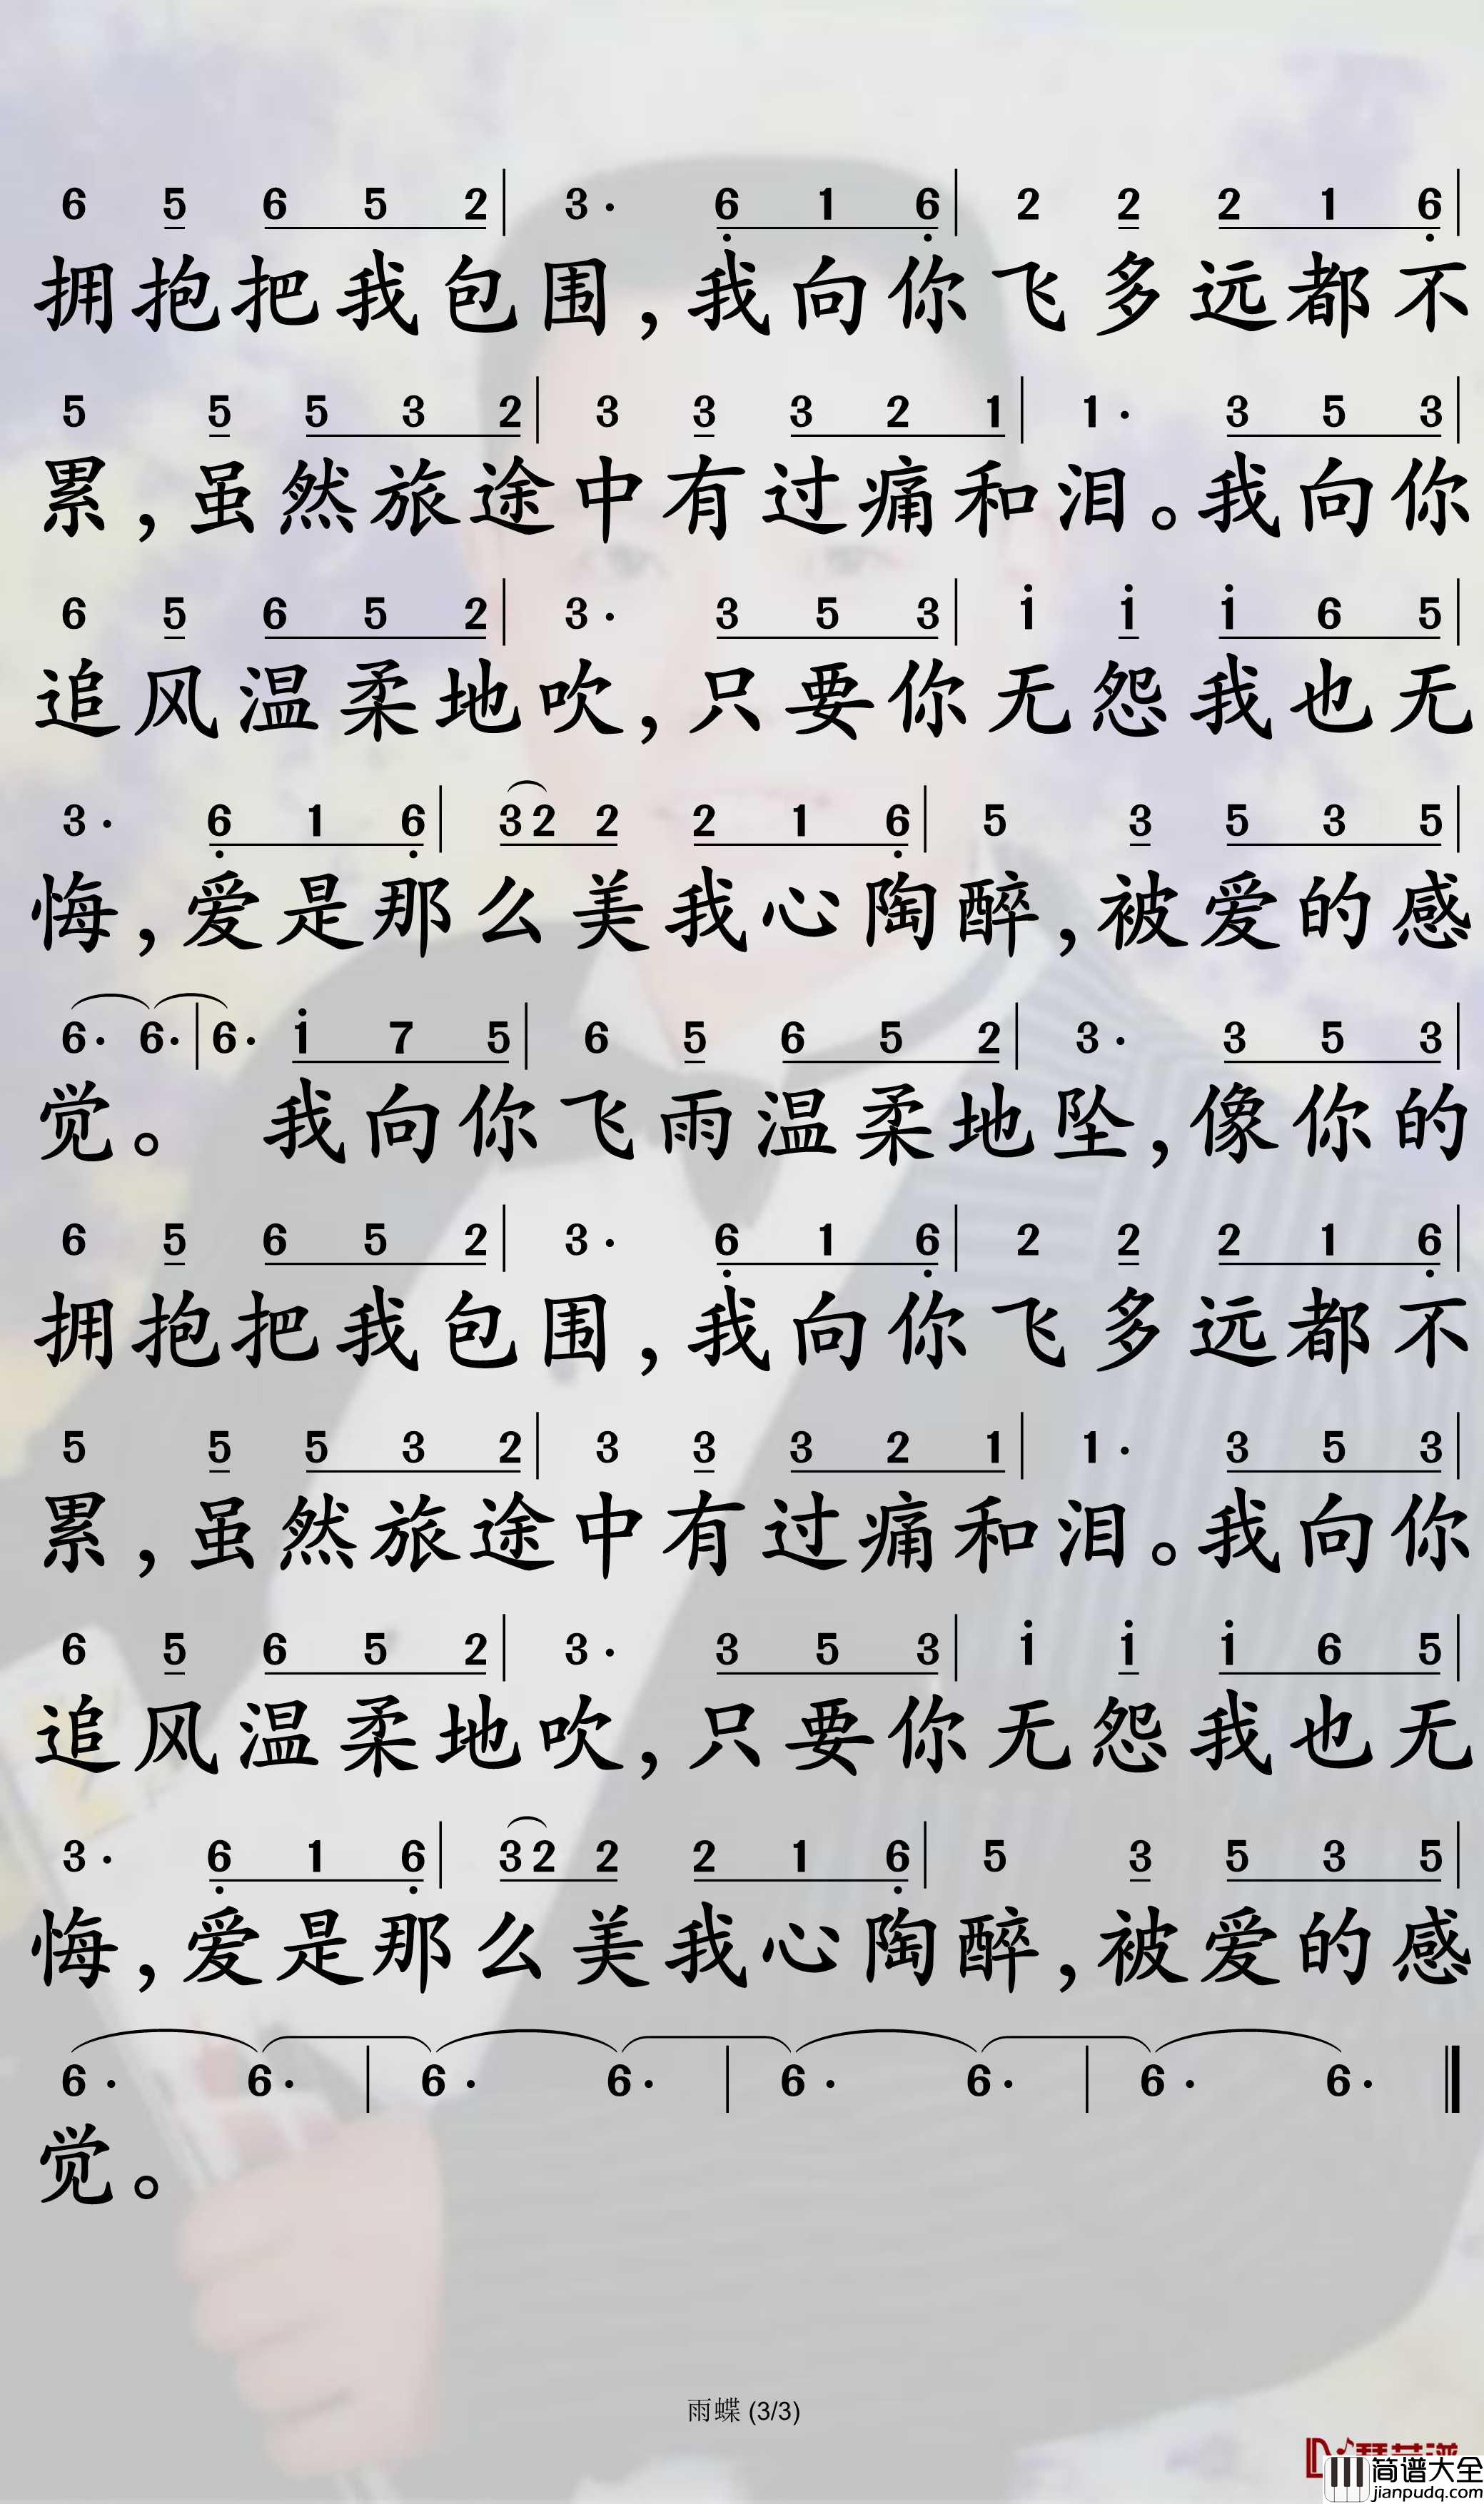 6 5 6 5 2 | 3· 6̣ 1 6̣ | 2 2 2 1 6̣ |
拥抱把我包围,我向你飞多远都不
5 5 5 3 2 | 3 3 3 2 1 | 1· 3 5 3 |
累,虽然旅途中有过痛和泪。我向你
6 5 6 5 2 | 3· 3 5 3 | 1̇ 1̇ 1̇ 6 5 |
追风温柔地吹,只要你无怨我也无
3· 6̣ 1 6̣ | 3 2 2 2 1 6̣ | 5 3 5 3 5 |
悔,爱是那么美我心陶醉,被爱的感
6· 6· | 6· 1̇ 7 5 | 6 5 6 5 2 | 3· 3 5 3 |
觉。 我向你飞雨温柔地坠,像你的
6 5 6 5 2 | 3· 6̣ 1 6̣ | 2 2 2 1 6̣ |
拥抱把我包围,我向你飞多远都不
5 5 5 3 2 | 3 3 3 2 1 | 1· 3 5 3 |
累,虽然旅途中有过痛和泪。我向你
6 5 6 5 2 | 3· 3 5 3 | 1̇ 1̇ 1̇ 6 5 |
追风温柔地吹,只要你无怨我也无
3· 6̣ 1 6̣ | 3 2 2 2 1 6̣ | 5 3 5 3 5 |
悔,爱是那么美我心陶醉,被爱的感
6· 6· | 6· 6· | 6· 6· | 6· 6· ‖
觉。
雨蝶 (3/3)
简谱大全
jianpudq.com